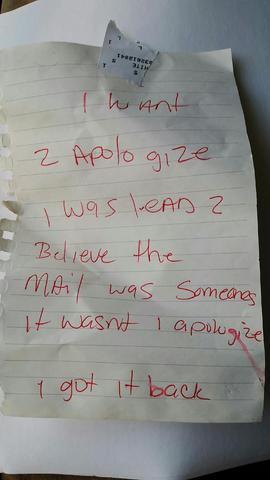 I WANT
2 APOlOgIZE
I WAS lEAD 2
Believe the
MAil was Someones
it wasnt I apologize
I got it back